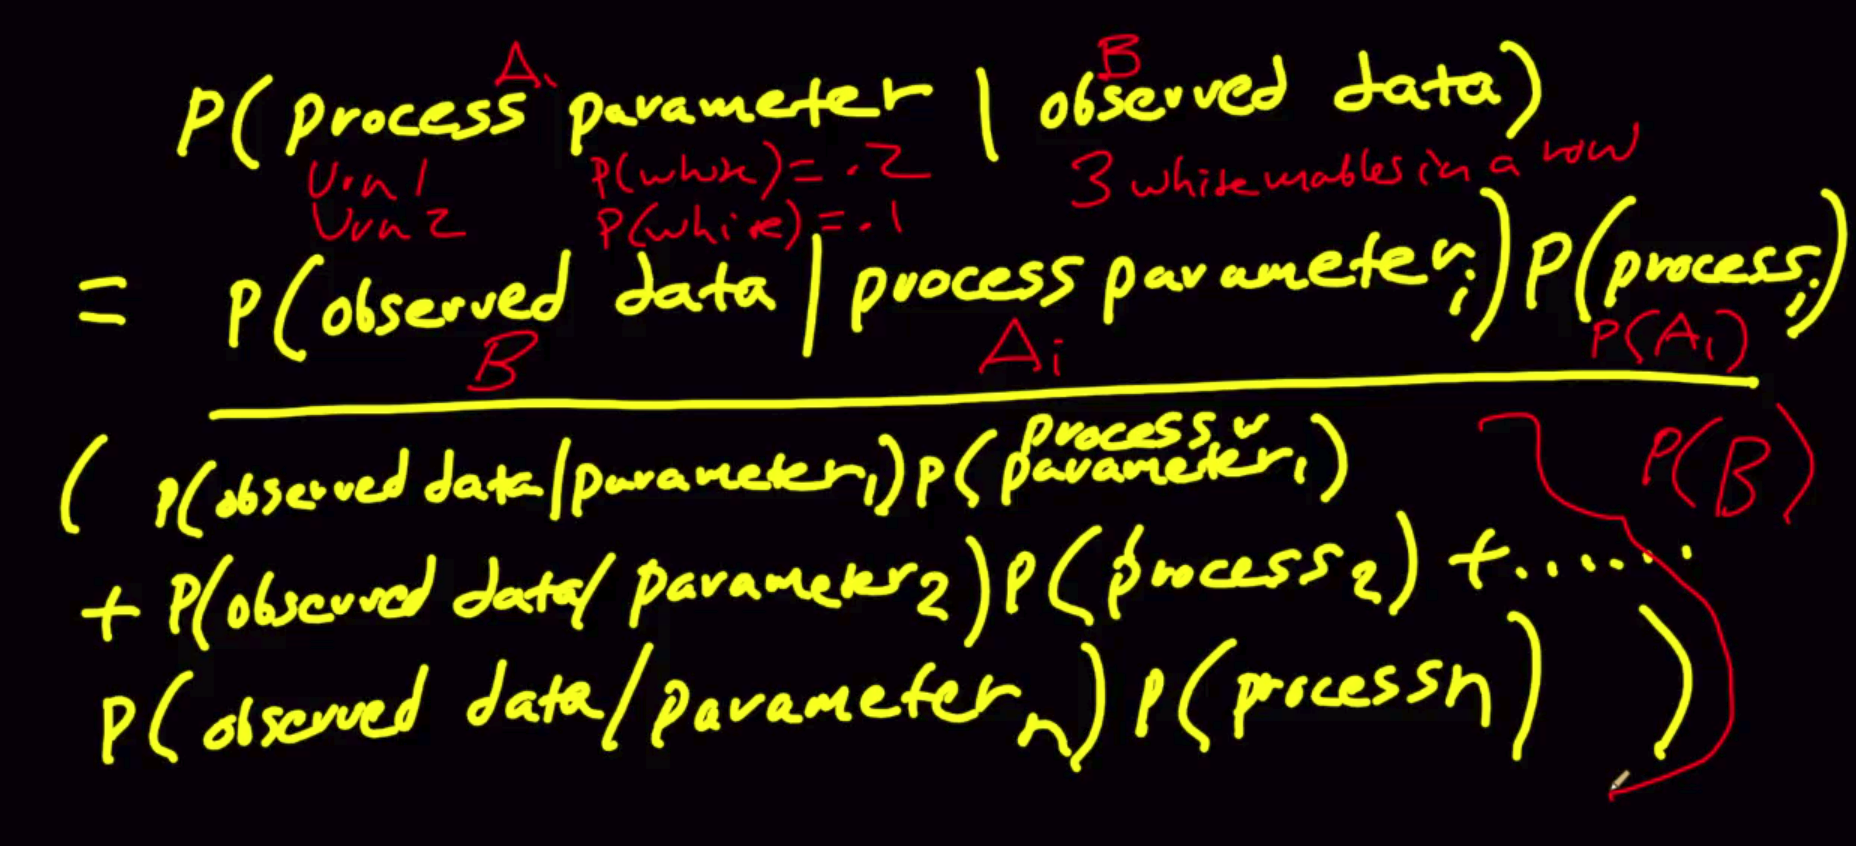 A₁ B
P(process parameter | observed data)
Urn 1 P(white) = .2 3 white marbles in a row
Urn 2 P(white) = .1
= P(observed data | process parameterᵢ) P(processᵢ)
B Aᵢ P(Aᵢ)
( P(observed data/parameter₁) P(process parameter₁) P(B)
+ P(observed data/parameter₂) P(process₂) + ......
P(observed data/parameterₙ) P(processₙ) )